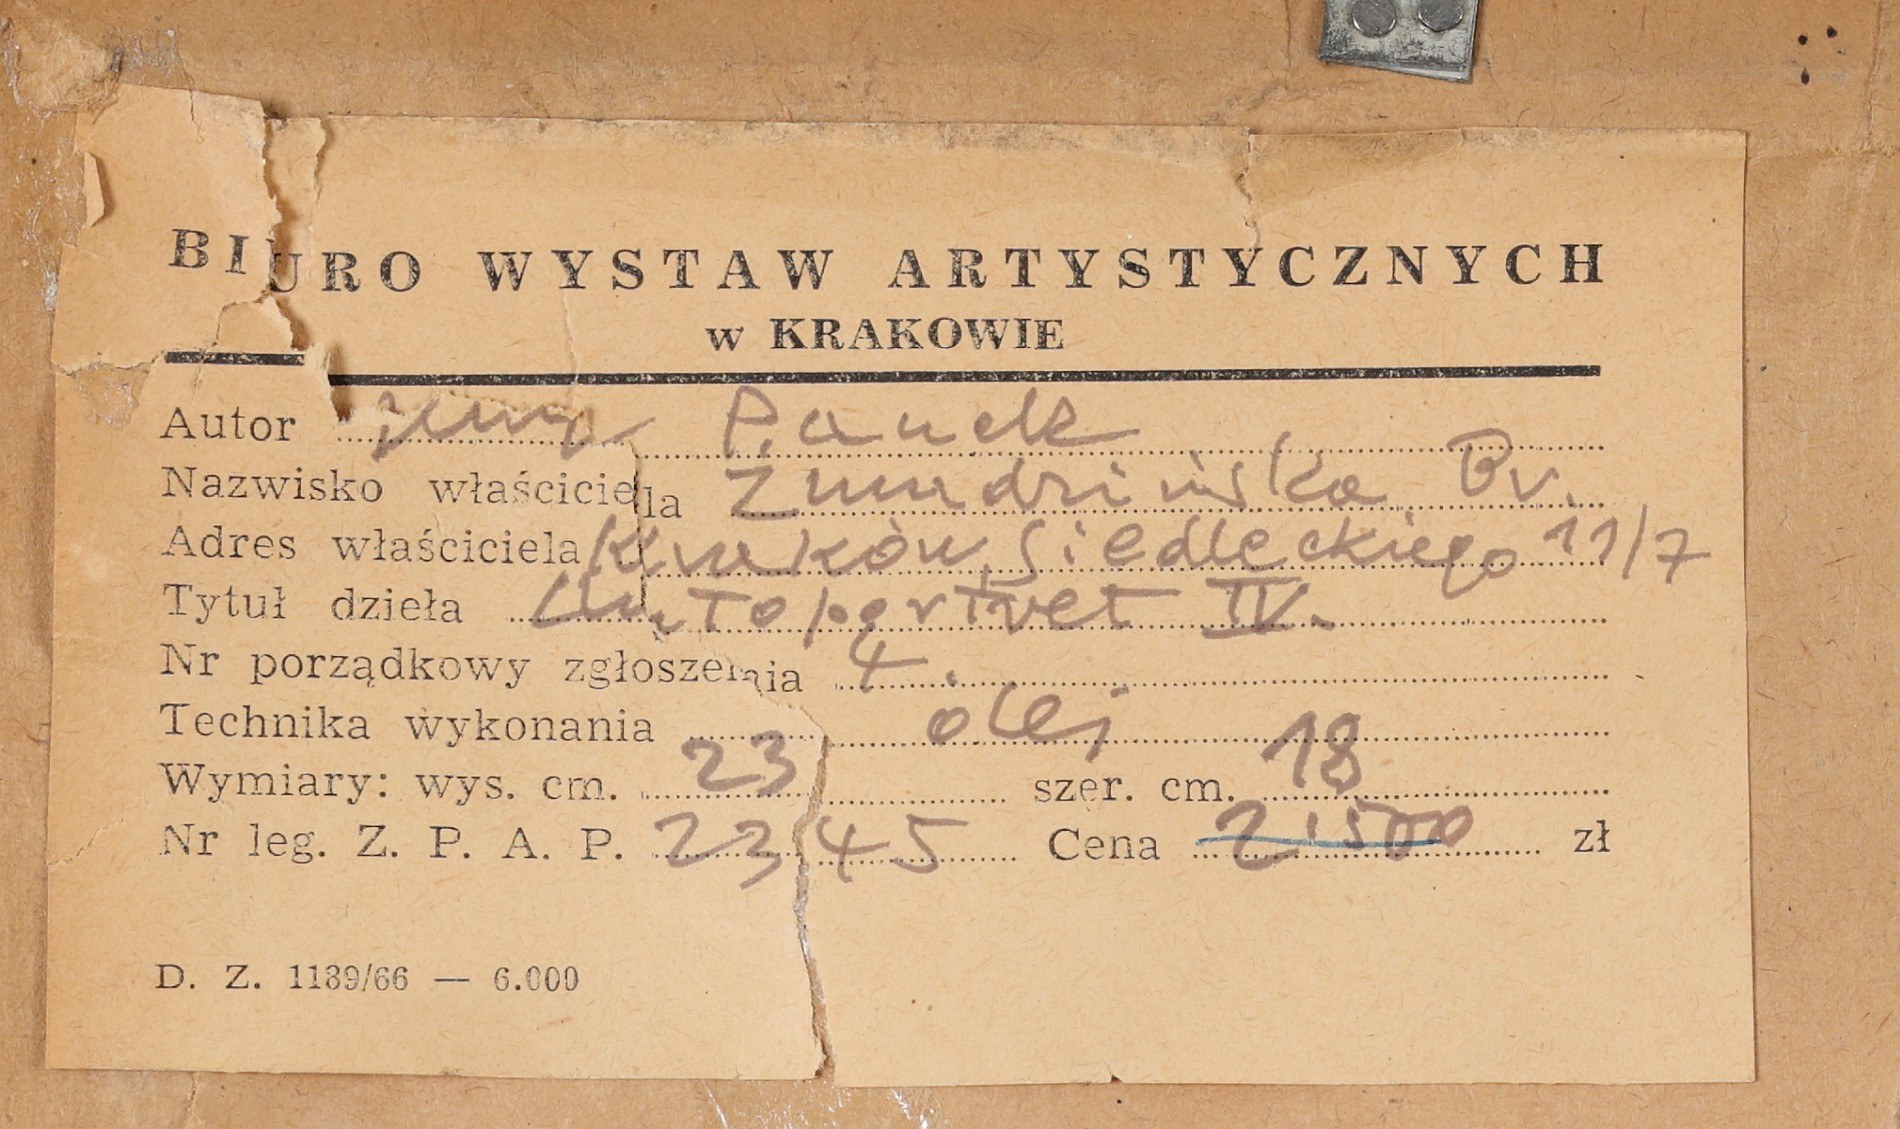 BIURO WYSTAW ARTYSTYCZNYCH
w KRAKOWIE
Autor Jerzy Panek
Nazwisko właściciela Żmudzińska Br.
Adres właściciela Kraków, Siedleckiego 11/7
Tytuł dzieła Autoportret IV.
Nr porządkowy zgłoszenia 4.
Technika wykonania olej
Wymiary: wys. cm. 23 szer. cm. 18
Nr leg. Z. P. A. P. 2345 Cena zł
D. Z. 1189/66 — 6.000